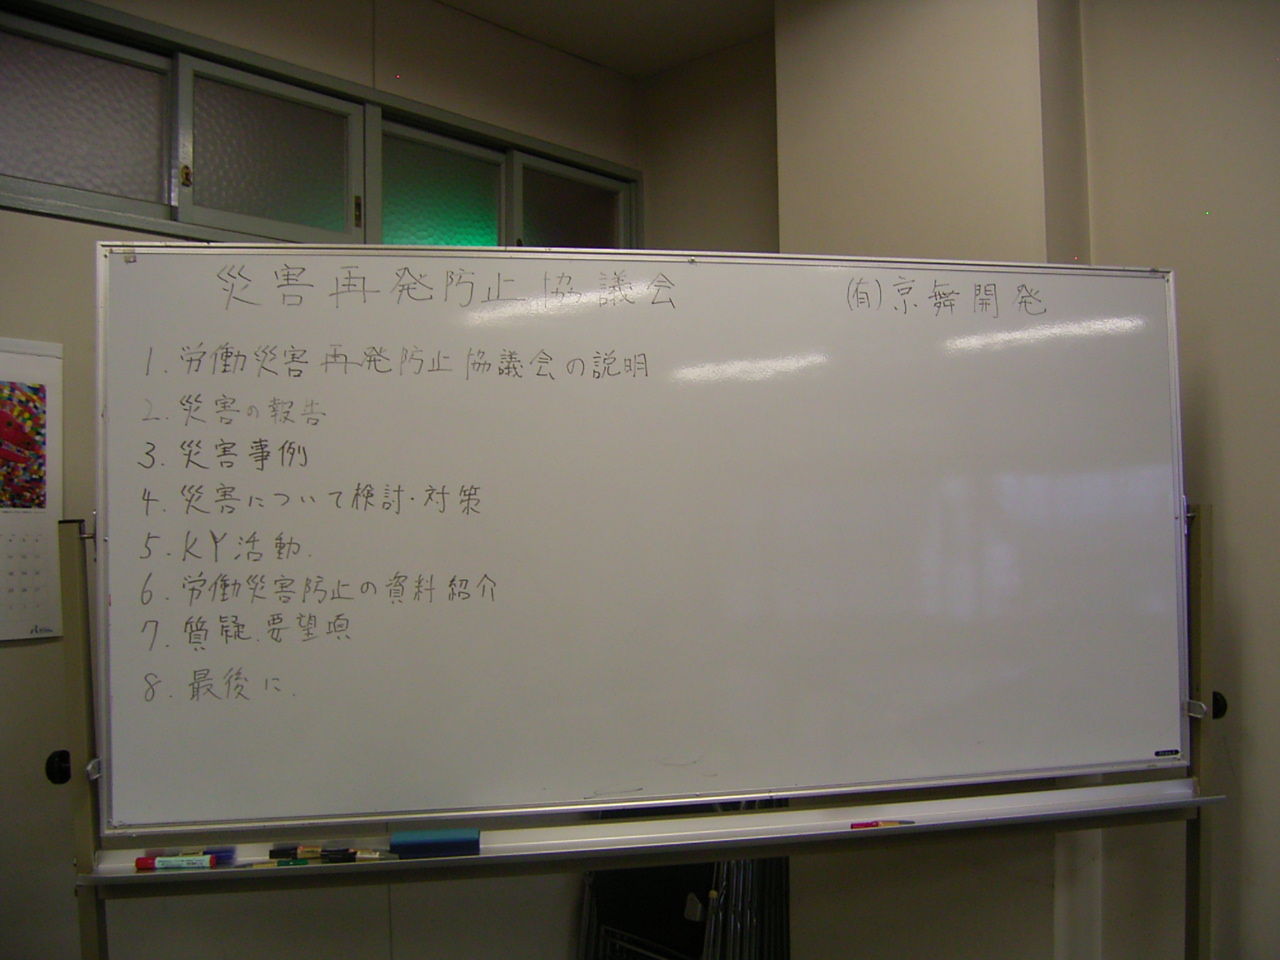 災害再発防止協議会
(有)京舞開発
1. 労働災害再発防止協議会の説明
2. 災害の報告
3. 災害事例
4. 災害について検討・対策
5. KY活動.
6. 労働災害防止の資料紹介
7. 質疑.要望項
8. 最後に.